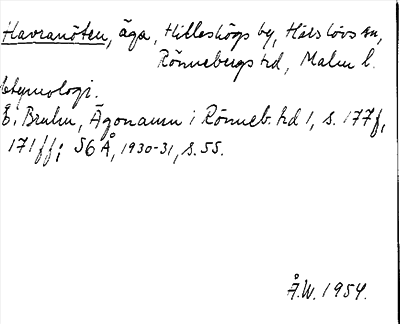 Havranöten, äga, Hilleshögs by, Härslövs sn,
Rönnebergs hd, Malm l.
Etymologi.
E. Bruhn, Ägonamn i Rönneb. hd 1, s. 177f,
171ff; SGÅ, 1930-31, s. 55.
Å.W. 1954.